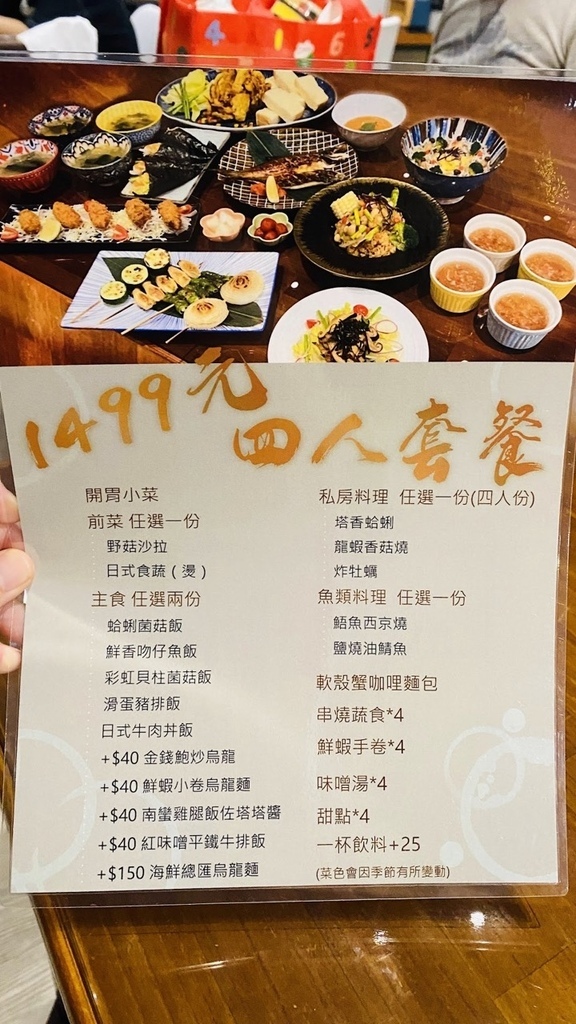 4 1 6 5
1499元
四人套餐
開胃小菜
前菜 任選一份
野菇沙拉
日式食蔬（燙）
主食 任選兩份
蛤蜊菌菇飯
鮮香吻仔魚飯
彩虹貝柱菌菇飯
滑蛋豬排飯
日式牛肉丼飯
+$40 金錢鮑炒烏龍
+$40 鮮蝦小卷烏龍麵
+$40 南蠻雞腿飯佐塔塔醬
+$40 紅味噌平鐵牛排飯
+$150 海鮮總匯烏龍麵
私房料理 任選一份(四人份)
塔香蛤蜊
龍蝦香菇燒
炸牡蠣
魚類料理 任選一份
鯃魚西京燒
鹽燒油鯖魚
軟殼蟹咖哩麵包
串燒蔬食*4
鮮蝦手卷*4
味噌湯*4
甜點*4
一杯飲料+25
(菜色會因季節有所變動)